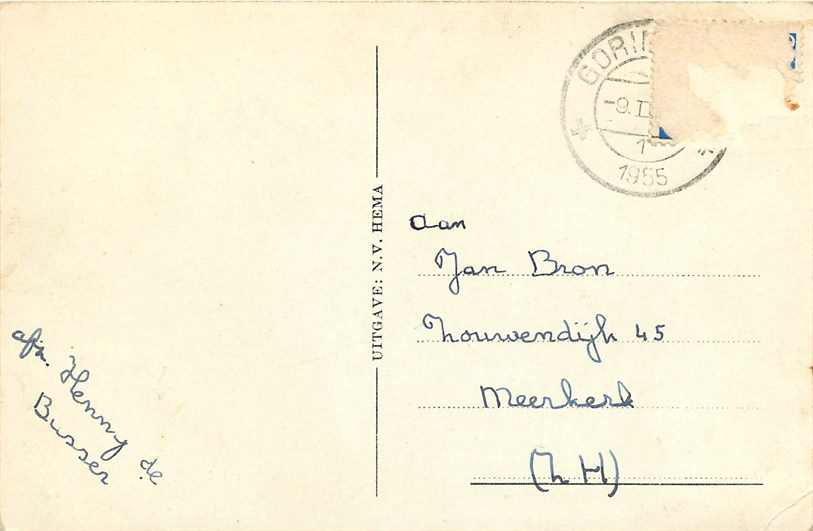 GORIN
-9.II
1
1955
UITGAVE: N.V. HEMA
aan
Jan Bron
Zouwendijk 45
Meerkerk
(Z H)
afz. Henny de
Busser